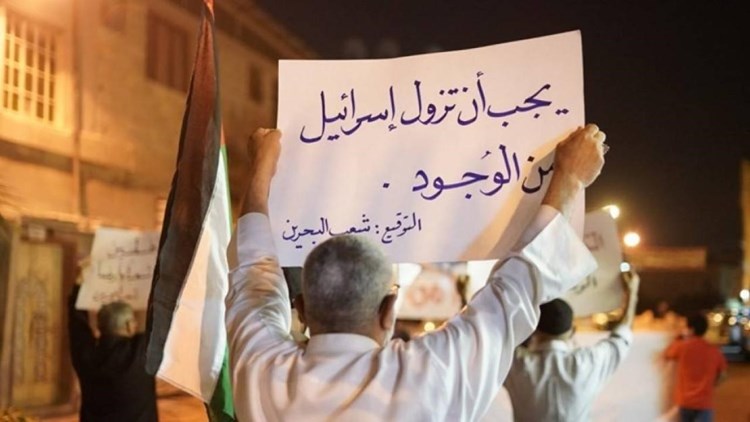 يجب أن تزول إسرائيل
من الوُجود .
التوقيع : شعب البحرين
فلسطين